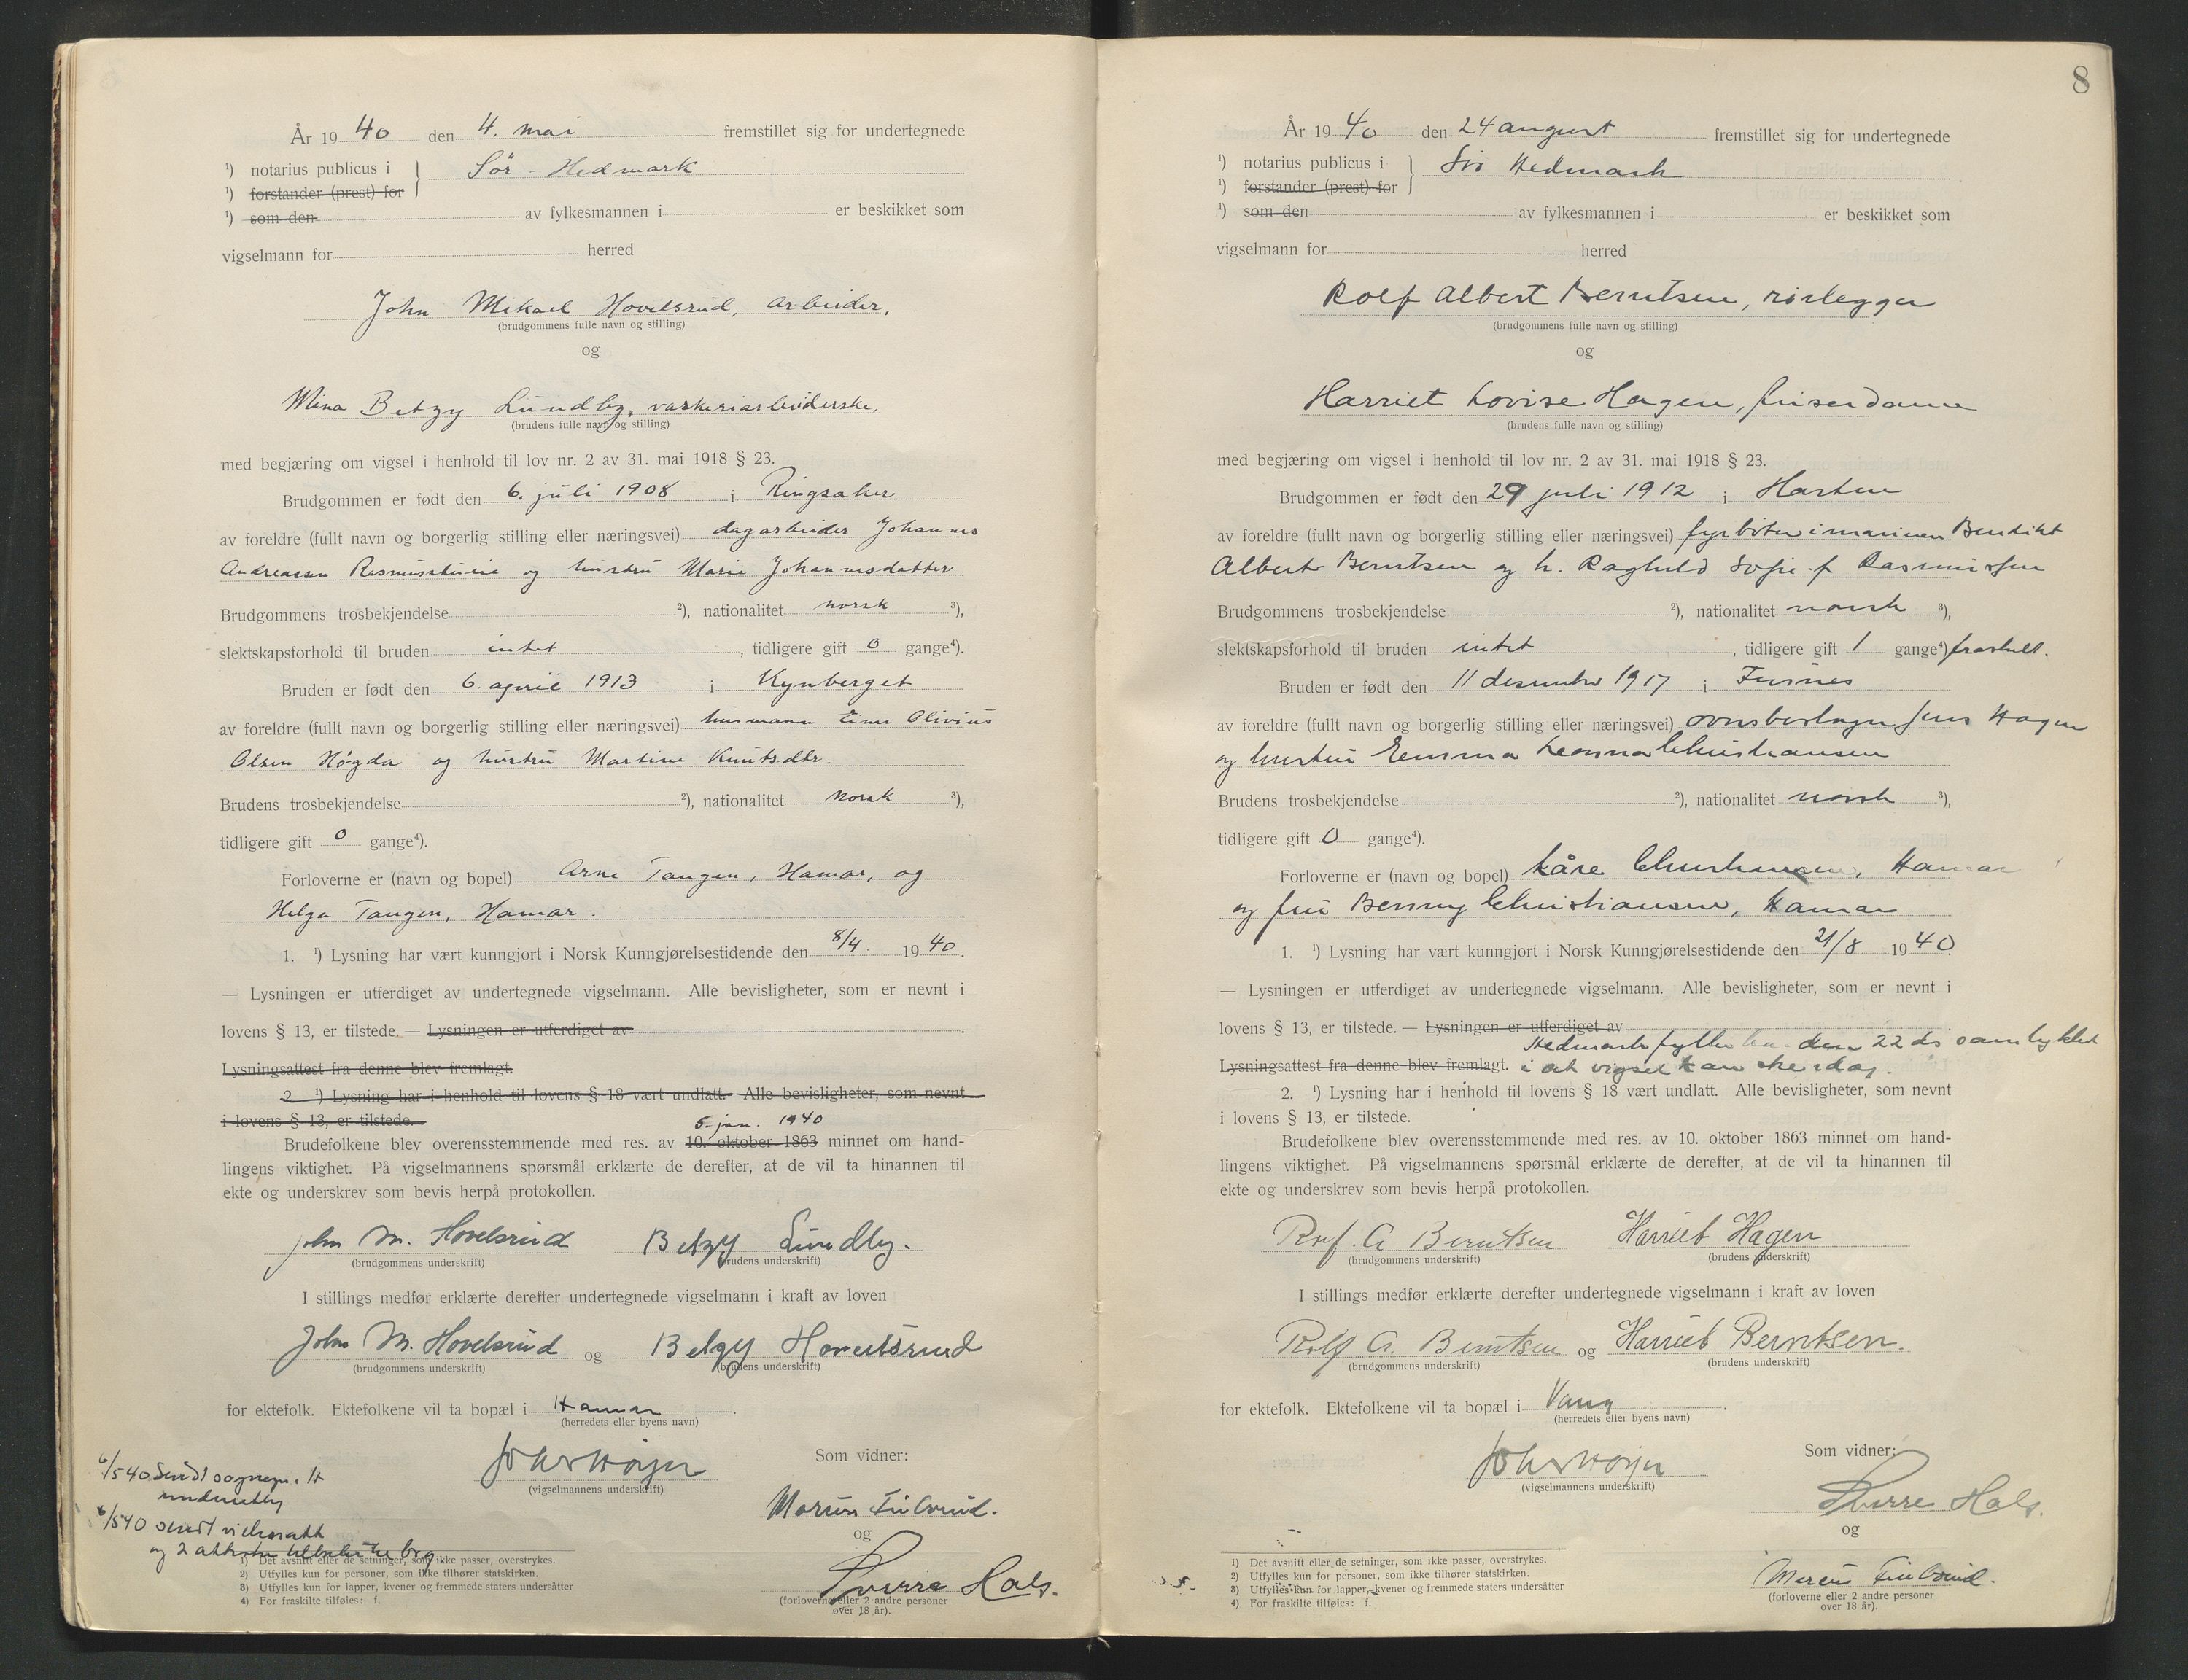 År 19 40 den 4. mai fremstillet sig for undertegnede
¹) notarius publicus i } Sør-Hedmark
¹) forstander (prest) for
¹) som den av fylkesmannen i er beskikket som
vigselmann for herred
John Mikael Hovelsrud, arbeider,
(brudgommens fulle navn og stilling)
og
Mina Betzy Lundby, vaskeriarbeiderske,
(brudens fulle navn og stilling)
med begjæring om vigsel i henhold til lov nr. 2 av 31. mai 1918 § 23.
Brudgommen er født den 6. juli 1908 i Ringsaker
av foreldre (fullt navn og borgerlig stilling eller næringsvei) dagarbeider Johannes
Andreassen Rasmusstuen og hustru Marie Johannesdatter
Brudgommens trosbekjendelse ²), nationalitet norsk ³),
slektskapsforhold til bruden intet , tidligere gift 0 gange⁴).
Bruden er født den 6. april 1913 i Kynberget
av foreldre (fullt navn og borgerlig stilling eller næringsvei) husmann Einar Olivius
Olsen Høgda og hustru Martine Knutsdtr.
Brudens trosbekjendelse ²), nationalitet norsk ³),
tidligere gift 0 gange⁴).
Forloverne er (navn og bopel) Arne Tangen, Hamar, og
Helga Tangen, Hamar.
1. ¹) Lysning har vært kunngjort i Norsk Kunngjørelsestidende den 8/4. 19 40.
— Lysningen er utferdiget av undertegnede vigselmann. Alle bevisligheter, som er nevnt i
lovens § 13, er tilstede. — Lysningen er utferdiget av .
Lysningsattest fra denne blev fremlagt.
2. ¹) Lysning har i henhold til lovens § 18 vært undlatt. Alle bevisligheter, som nevnt
i lovens § 13, er tilstede.
5. jan. 1940
Brudefolkene blev overensstemmende med res. av 10. oktober 1863 minnet om hand-
lingens viktighet. På vigselmannens spørsmål erklærte de derefter, at de vil ta hinannen til
ekte og underskrev som bevis herpå protokollen.
John M. Hovelsrud Betzy Lundby.
(brudgommens underskrift) (brudens underskrift)
I stillings medfør erklærte derefter undertegnede vigselmann i kraft av loven
John M. Hovelsrud og Betzy Hovelsrud
(brudgommens underskrift) (brudens underskrift)
for ektefolk. Ektefolkene vil ta bopæl i Hamar .
(herredets eller byens navn)
Som vidner:
(vigselmannens underskrift)
6/5 40 Sendt sognepr. H
6/5 40 sendt
og 2 attester
og
Sverre Hals.
(forloverne eller 2 andre personer
over 18 år).
1) Det avsnitt eller de setninger, som ikke passer, overstrykes.
2) Utfylles kun for personer, som ikke tilhører statskirken.
3) Utfylles kun for lapper, kvener og fremmede staters undersåtter
4) For fraskilte tilføies: f.
8
År 19 40 den 24 august fremstillet sig for undertegnede
¹) notarius publicus i } Sør Hedmark
¹) forstander (prest) for
¹) som den av fylkesmannen i er beskikket som
vigselmann for herred
Rolf Albert Berntsen, rørlegger
(brudgommens fulle navn og stilling)
og
Harriet Lovise Hagen, friserdame
(brudens fulle navn og stilling)
med begjæring om vigsel i henhold til lov nr. 2 av 31. mai 1918 § 23.
Brudgommen er født den 29 juli 1912 i Horten
av foreldre (fullt navn og borgerlig stilling eller næringsvei) fyrbøter i marinen Bendikt
Albert Berntsen og h. Raghild Sofie f. Rasmussen
Brudgommens trosbekjendelse ²), nationalitet norsk ³),
slektskapsforhold til bruden intet , tidligere gift 1 gange⁴) fraskilt.
Bruden er født den 11 desember 1917 i Furnes
av foreldre (fullt navn og borgerlig stilling eller næringsvei) Jens Hagen
og hustru Emma Leonna Christiansen
Brudens trosbekjendelse ²), nationalitet norsk ³),
tidligere gift 0 gange⁴).
Forloverne er (navn og bopel) Kåre Christiansen, Hamar
og fru Benny Christiansen, Hamar
1. ¹) Lysning har vært kunngjort i Norsk Kunngjørelsestidende den 21/8 19 40.
— Lysningen er utferdiget av undertegnede vigselmann. Alle bevisligheter, som er nevnt i
lovens § 13, er tilstede. — Lysningen er utferdiget av
Hedmark fylke har den 22 ds samtykket
Lysningsattest fra denne blev fremlagt. i at vigsel kan skje idag.
2. ¹) Lysning har i henhold til lovens § 18 vært undlatt. Alle bevisligheter, som nevnt
i lovens § 13, er tilstede.
Brudefolkene blev overensstemmende med res. av 10. oktober 1863 minnet om hand-
lingens viktighet. På vigselmannens spørsmål erklærte de derefter, at de vil ta hinannen til
ekte og underskrev som bevis herpå protokollen.
Rolf. A Berntsen Harriet Hagen
(brudgommens underskrift) (brudens underskrift)
I stillings medfør erklærte derefter undertegnede vigselmann i kraft av loven
Rolf A. Berntsen og Harriet Berntsen.
(brudgommens underskrift) (brudens underskrift)
for ektefolk. Ektefolkene vil ta bopæl i Vang .
(herredets eller byens navn)
Som vidner:
(vigselmannens underskrift)
Sverre Hals.
og
(forloverne eller 2 andre personer
over 18 år).
1) Det avsnitt eller de setninger, som ikke passer, overstrykes.
2) Utfylles kun for personer, som ikke tilhører statskirken.
3) Utfylles kun for lapper, kvener og fremmede staters undersåtter
4) For fraskilte tilføies: f.